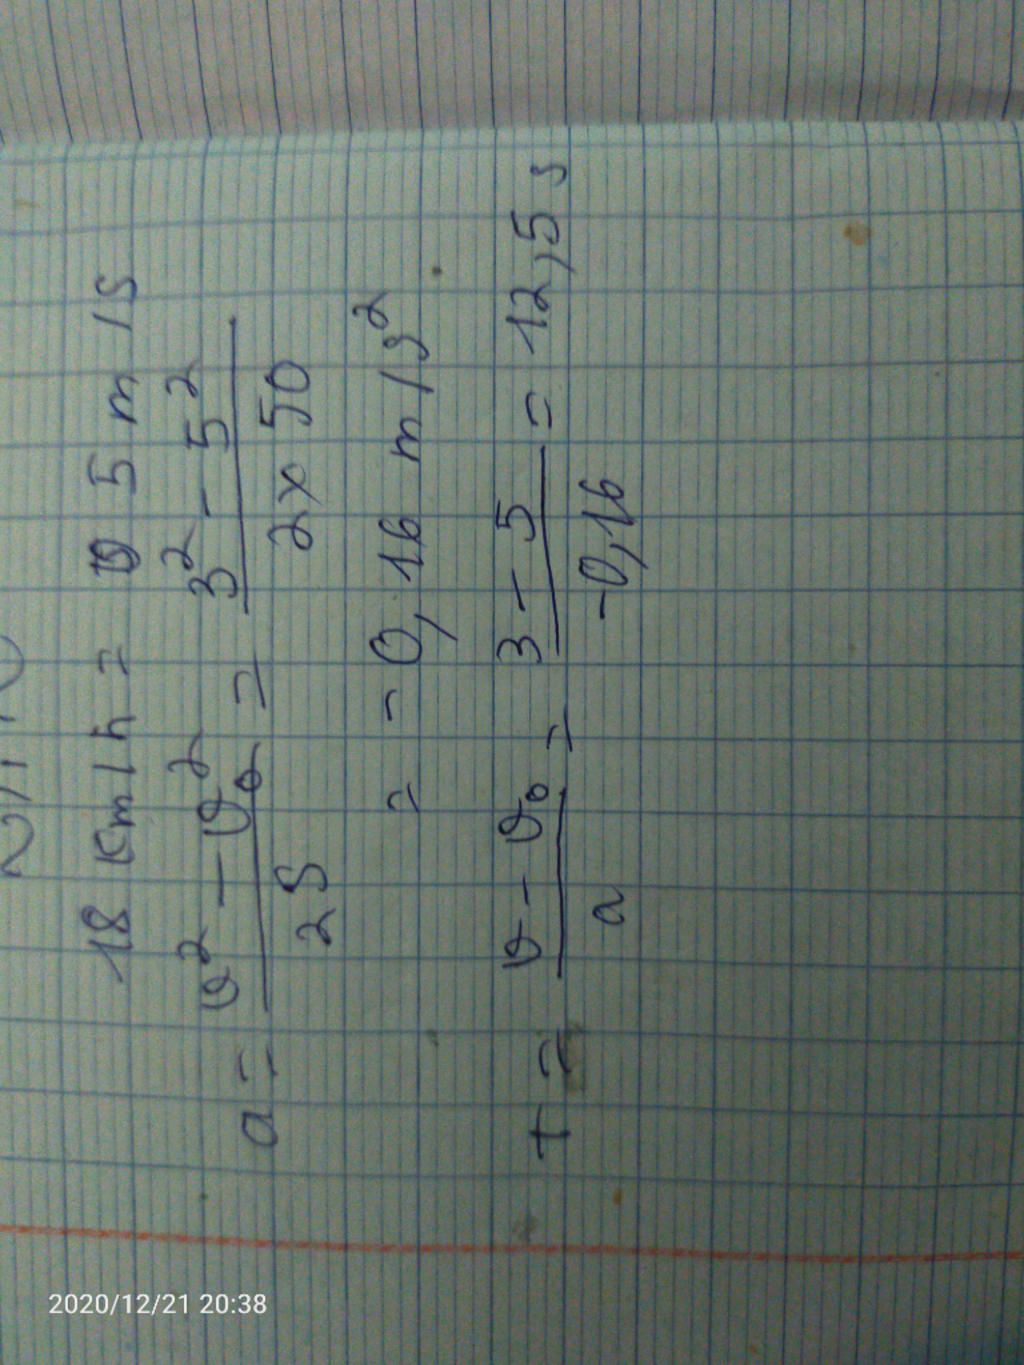 18 km/h = 5 m/s
a = v² - v₀² / 2S = 3² - 5² / 2x50
= - 0,16 m/s²
t = v - v₀ / a = 3 - 5 / -0,16 = 12,5 s
2020/12/21 20:38